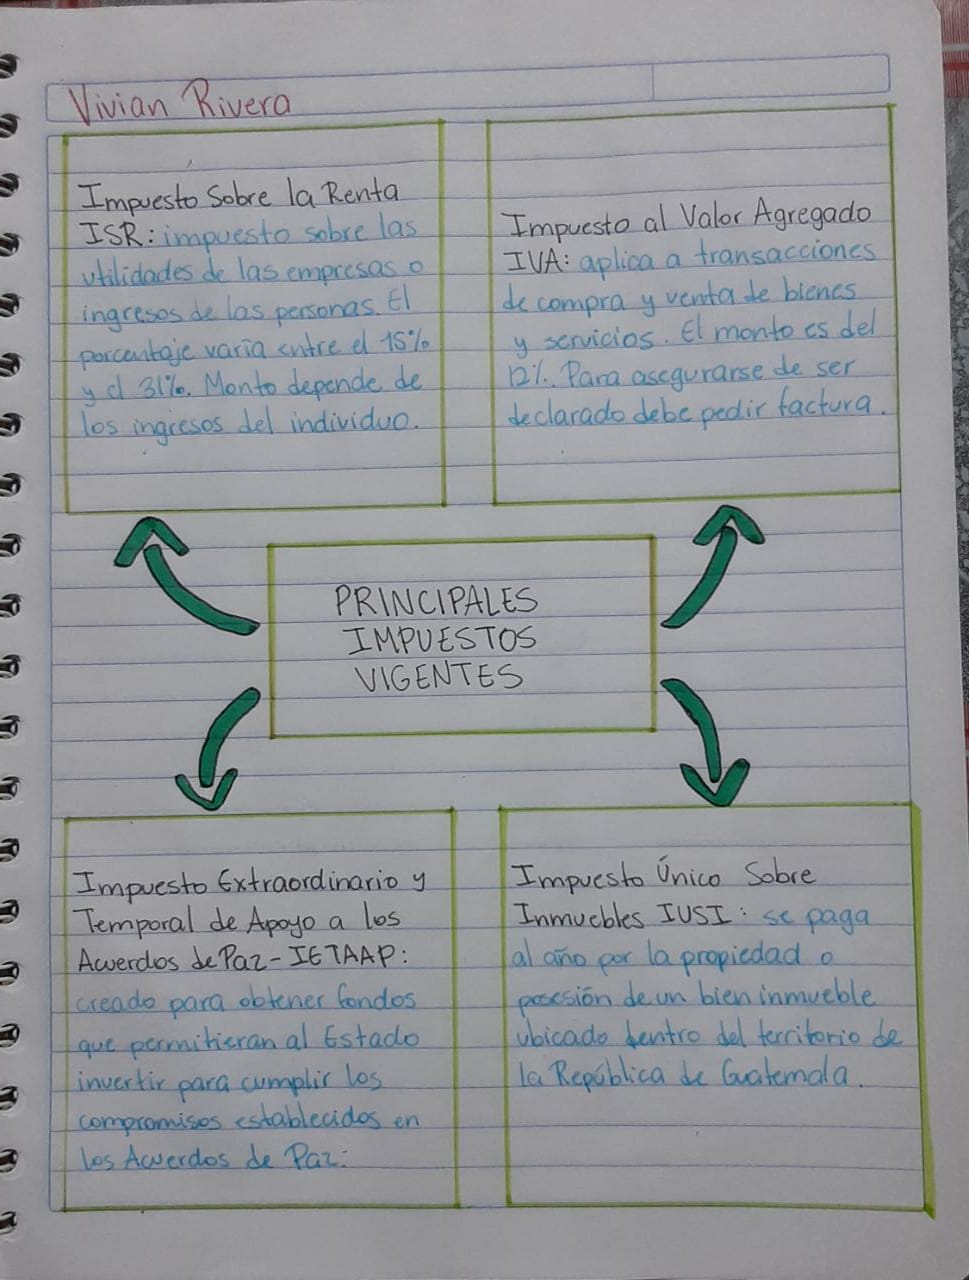 Vivian Rivera
Impuesto Sobre la Renta
ISR: impuesto sobre las
utilidades de las empresas o
ingresos de las personas. El
porcentaje varía entre el 15%
y el 31%. Monto depende de
los ingresos del individuo.
Impuesto al Valor Agregado
IVA: aplica a transacciones
de compra y venta de bienes
y servicios. El monto es del
12%. Para asegurarse de ser
declarado debe pedir factura.
PRINCIPALES
IMPUESTOS
VIGENTES
Impuesto Extraordinario y
Temporal de Apoyo a los
Acuerdos de Paz - IETAAP:
creado para obtener fondos
que permitieran al Estado
invertir para cumplir los
compromisos establecidos en
los Acuerdos de Paz.
Impuesto Único Sobre
Inmuebles IUSI: se paga
al año por la propiedad o
posesión de un bien inmueble
ubicado dentro del territorio de
la República de Guatemala.